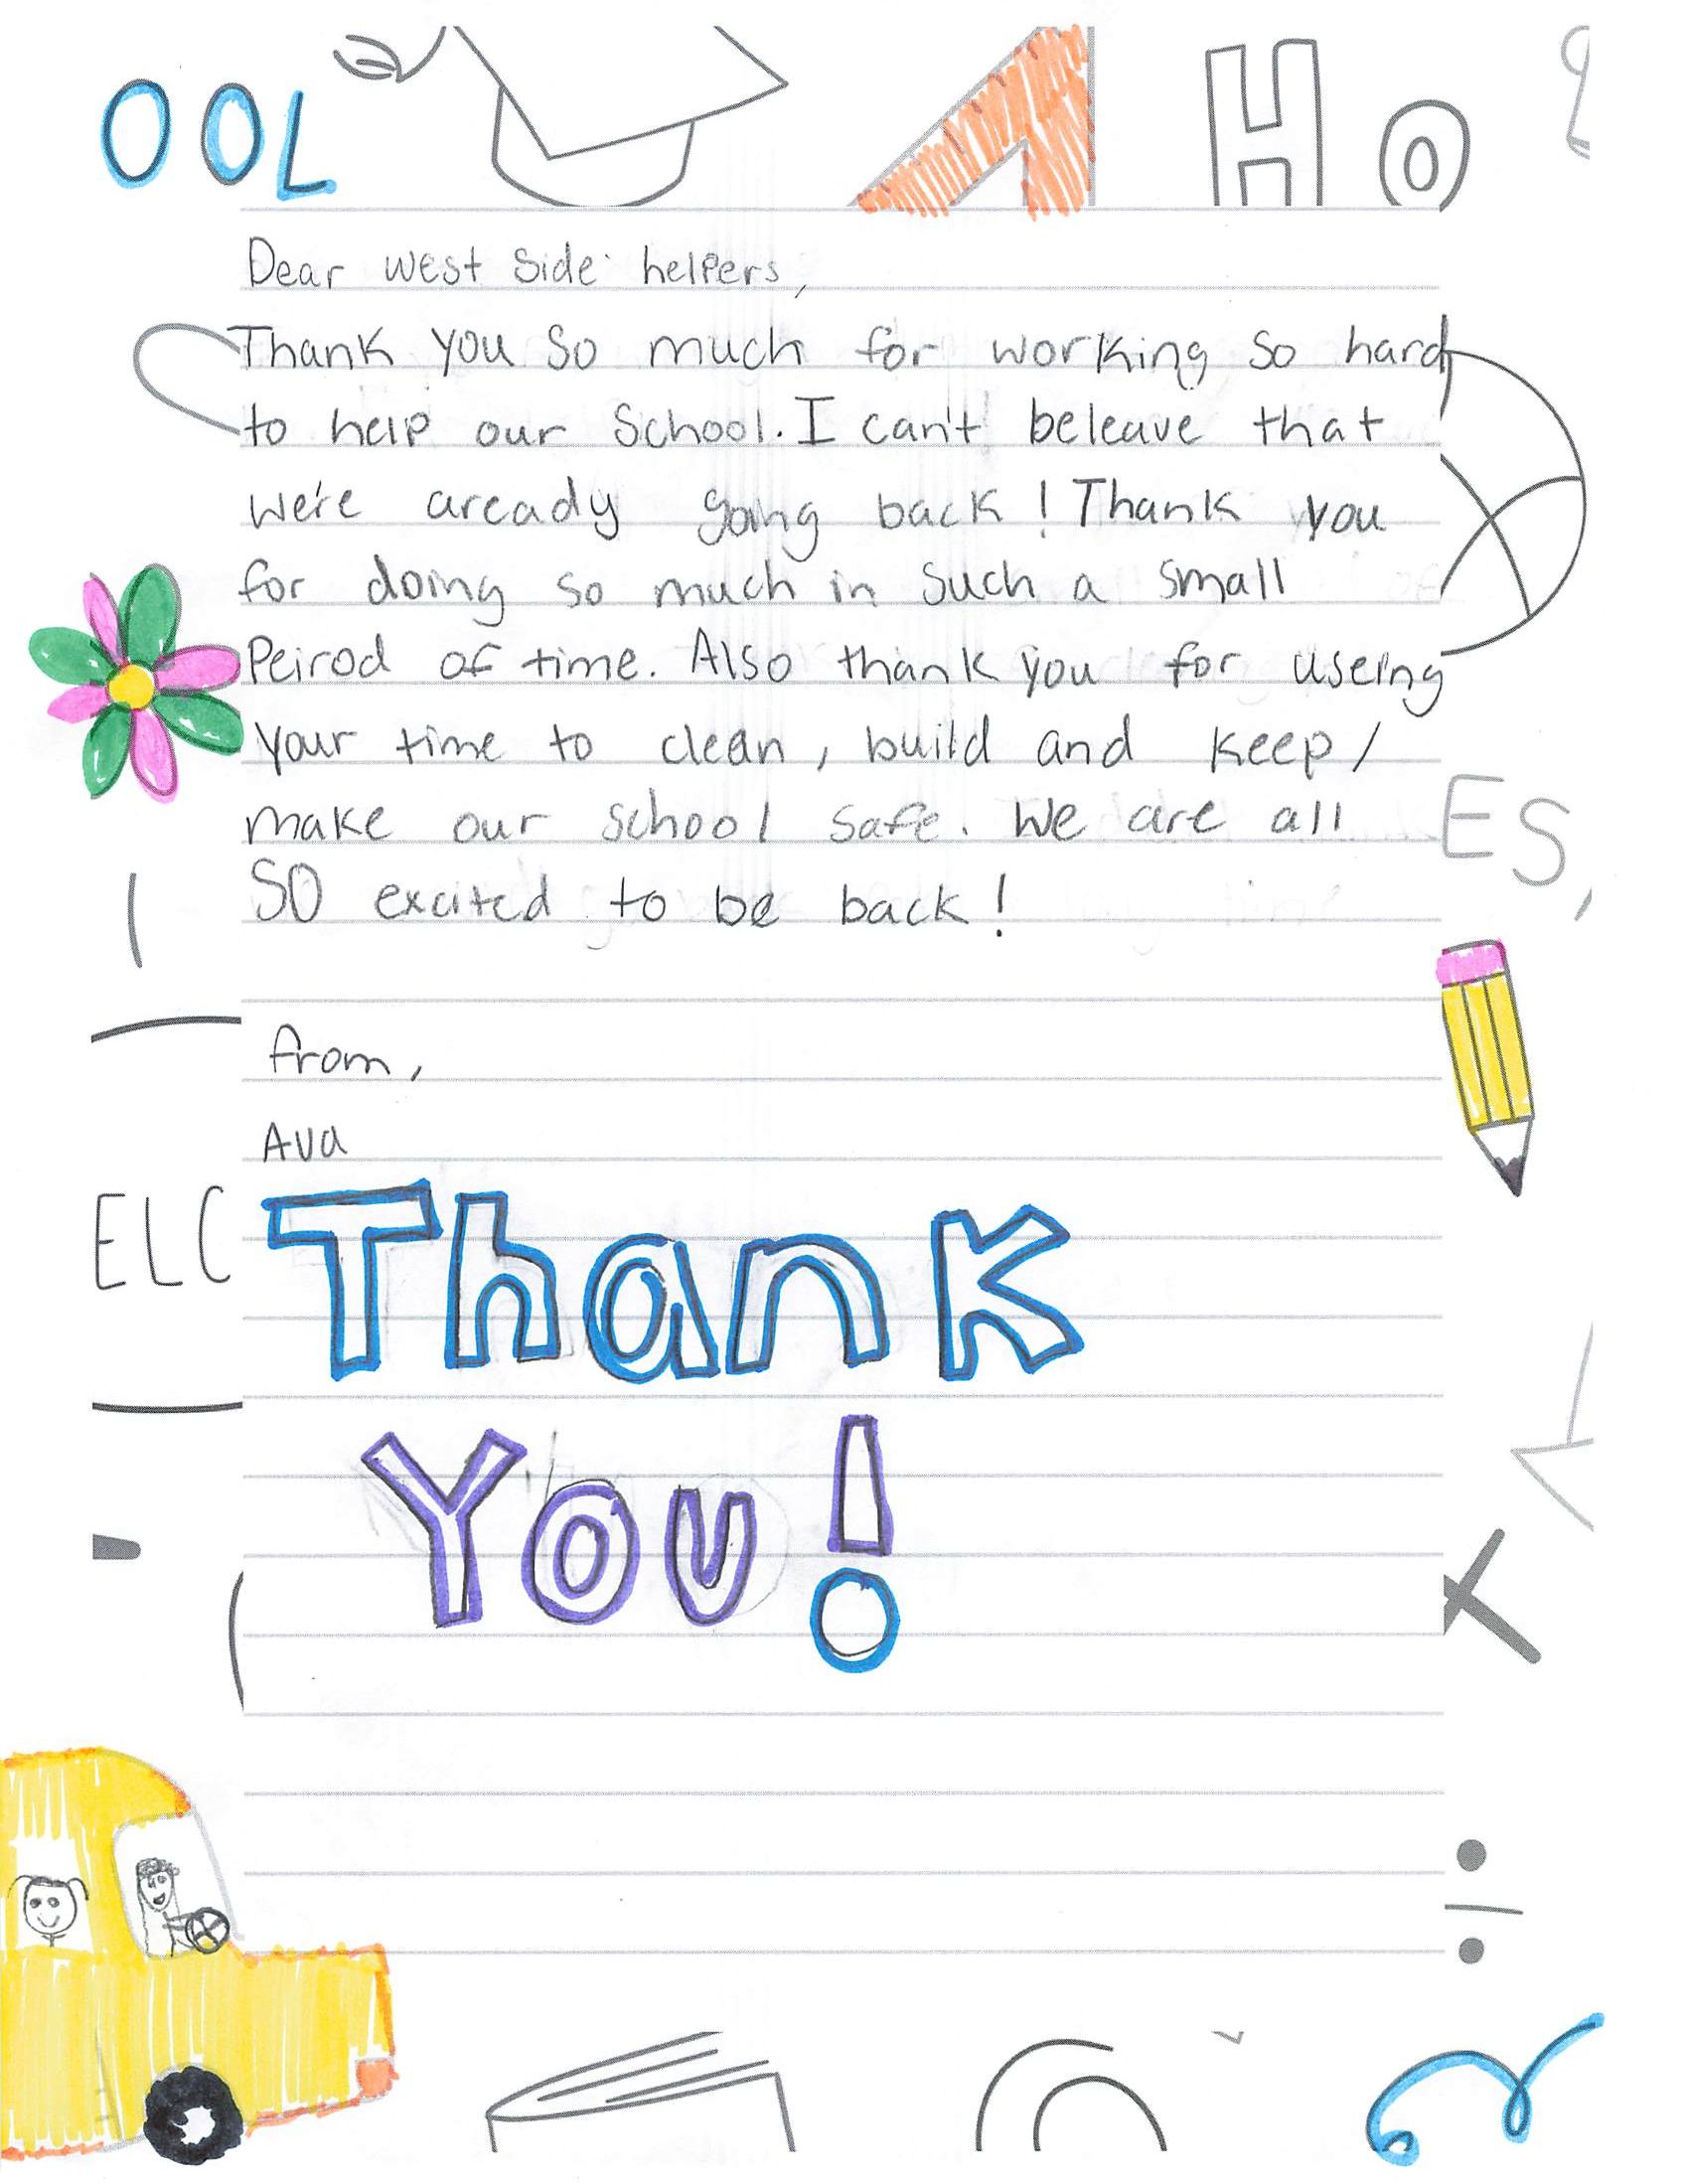 OOL
Ho
Dear west Side helpers,
Thank you So much for working so hard
to help our School. I can't beleave that
we're aready going back! Thank you
for doing so much in such a small
Peirod of time. Also thank you for useing
your time to clean, build and keep/
make our school safe. We are all
SO excited to be back!
ES,
from,
Ava
ELC
Thank
You!